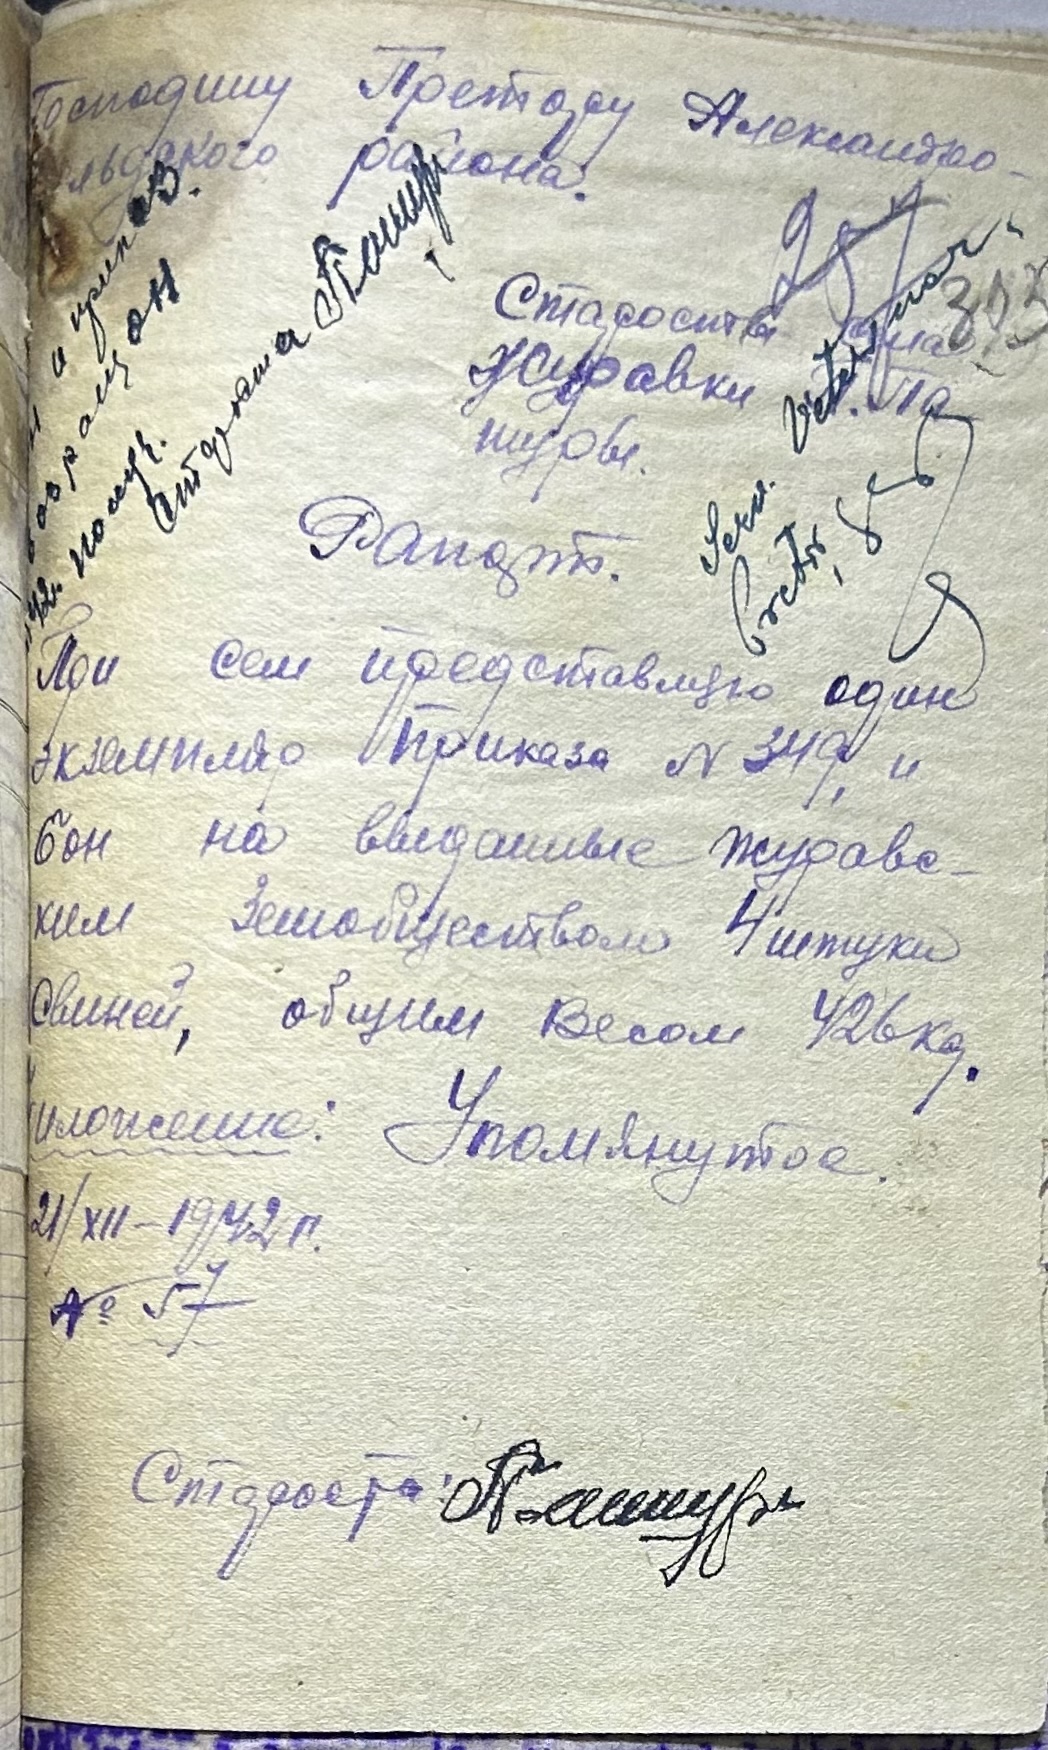 Господину Претору Александро-
льдского района.
Старосты села
Журавки П. Па
шуры.
Рапорт.
При сем представляю один
экземпляр Приказа N 349, и
бон на выданные журавс-
ким Земобществом 4 штуки
свиней, общим весом 426 кг.
иложение: Упомянутое.
21/XII-1942 г.
№ 57
Староста: Пашура
и
бон
получ.
Староста Пашура
Serv. Veterinar.
303